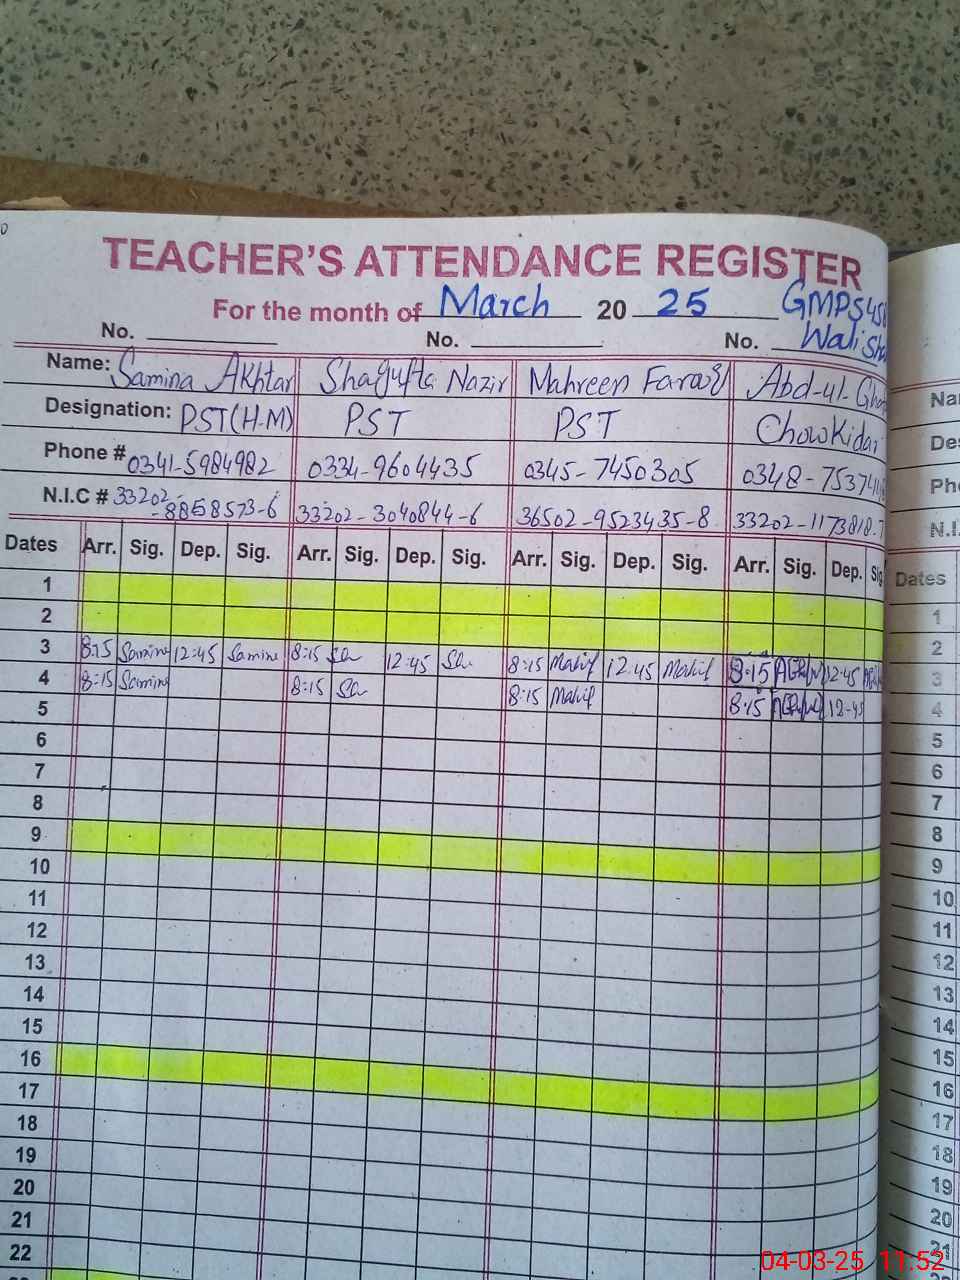 TEACHER'S ATTENDANCE REGISTER
For the month of March 20 25 GMPS
No. No. No. Wali
Name: Samina Akhtar Shagufta Nazir Mahreen Abd-ul
Designation: PST(H-M) PST PST Chowkidar
Phone # 0341-5984982 0334-9604435 0345-7450305 0348-
N.I.C # 33202-8858573-6 33202-3040844-6 36502-9523435-8 33202-1173818-7
Dates Arr. Sig. Dep. Sig. Arr. Sig. Dep. Sig. Arr. Sig. Dep. Sig. Arr. Sig. Dep. Sig
1
2
3 8:15 Samina 12:45 Samina 8:15 Sh 12:45 Sh 8:15 12:45 8:15 12:45
4 8:15 Samina 8:15 Sh 8:15 8:15 12-45
5
6
7
8
9
10
11
12
13
14
15
16
17
18
19
20
21
22
Na
De
Ph
N.I.
Dates
1
2
3
4
5
6
7
8
9
10
11
12
13
14
15
16
17
18
19
20
21
04-03-25 11:52